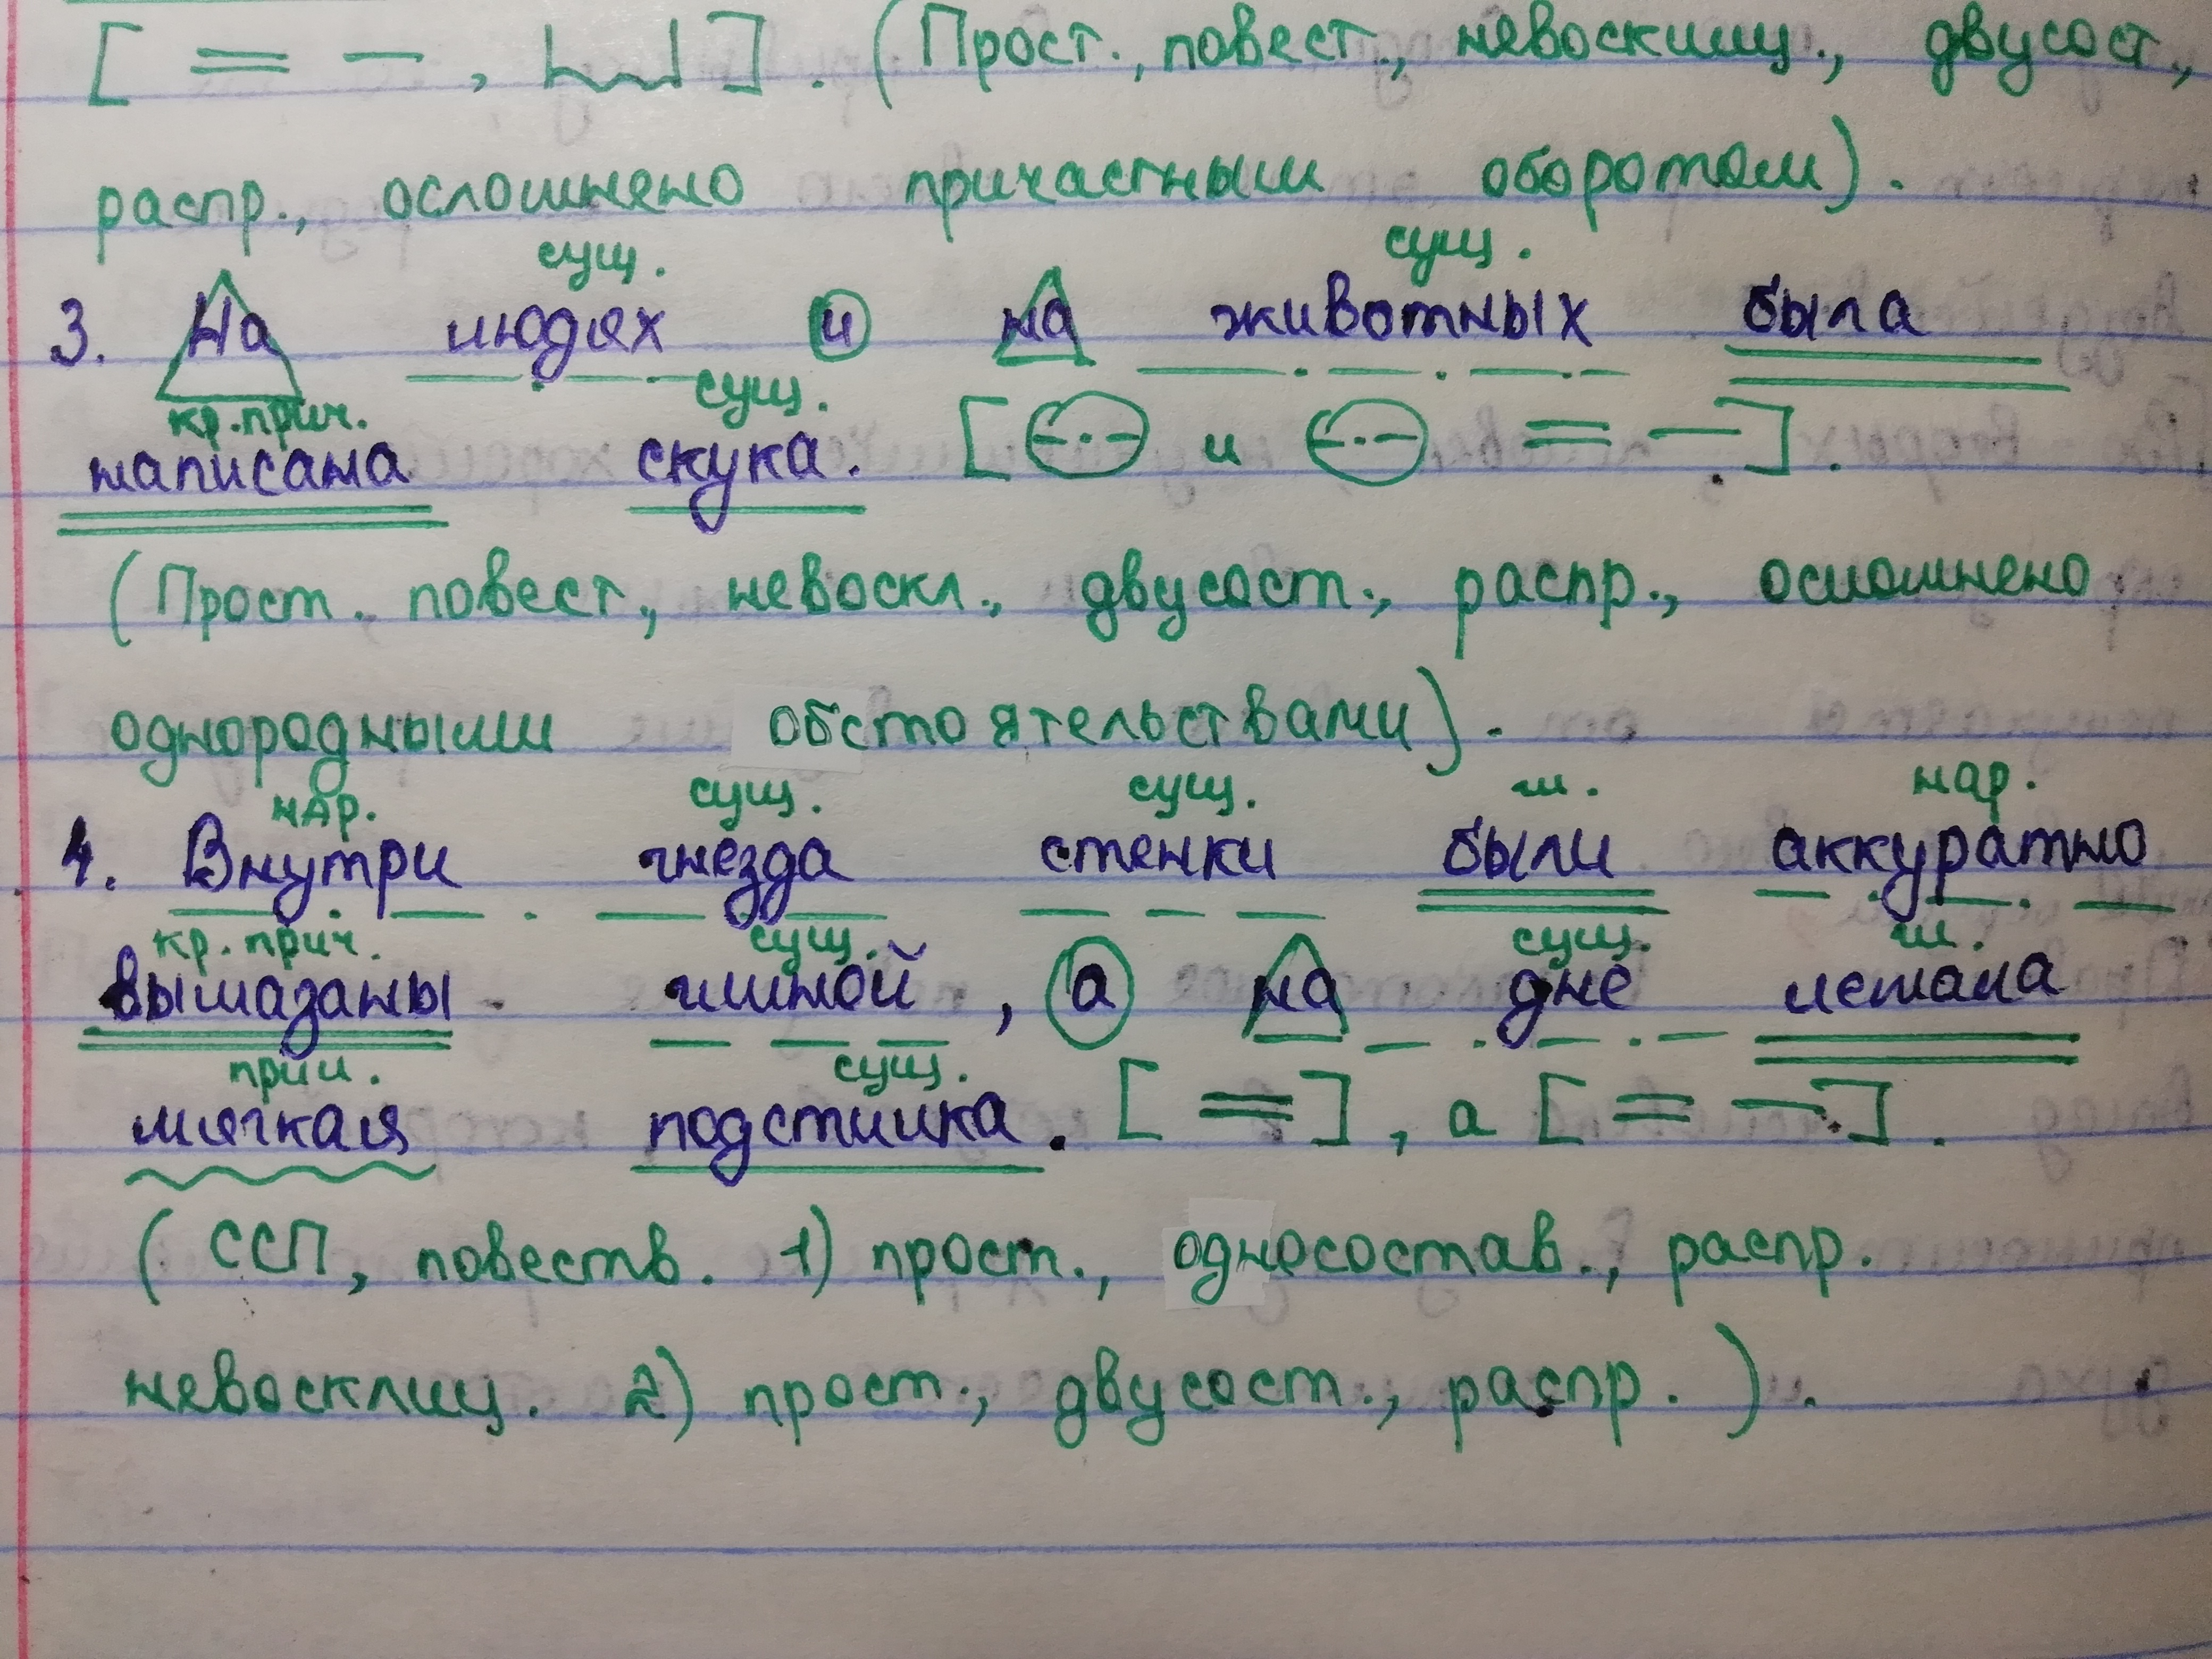 [ = — , |~| ]. (Прост., повест., невосклиц., двусост.,
распр., осложнено причастным оборотом).
сущ. сущ.
3. На людях и на животных была
кр.прич. сущ.
написана скука. [ и = — ].
(Прост. повест., невоскл., двусост., распр., осложнено
однородными обстоятельствами).
нар. сущ. сущ. гл. нар.
4. Внутри гнезда стенки были аккуратно
кр.прич. сущ. сущ. гл.
вымазаны глиной, а на дне лежала
прил. сущ.
мягкая подстилка. [ = ], а [ = — ].
( ССП, повеств. 1) прост., односостав., распр.
невосклиц. 2) прост., двусост., распр. ).